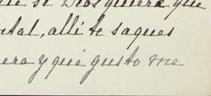 que si Dios quiera que
retal, alli te saques
era y qué gusto me